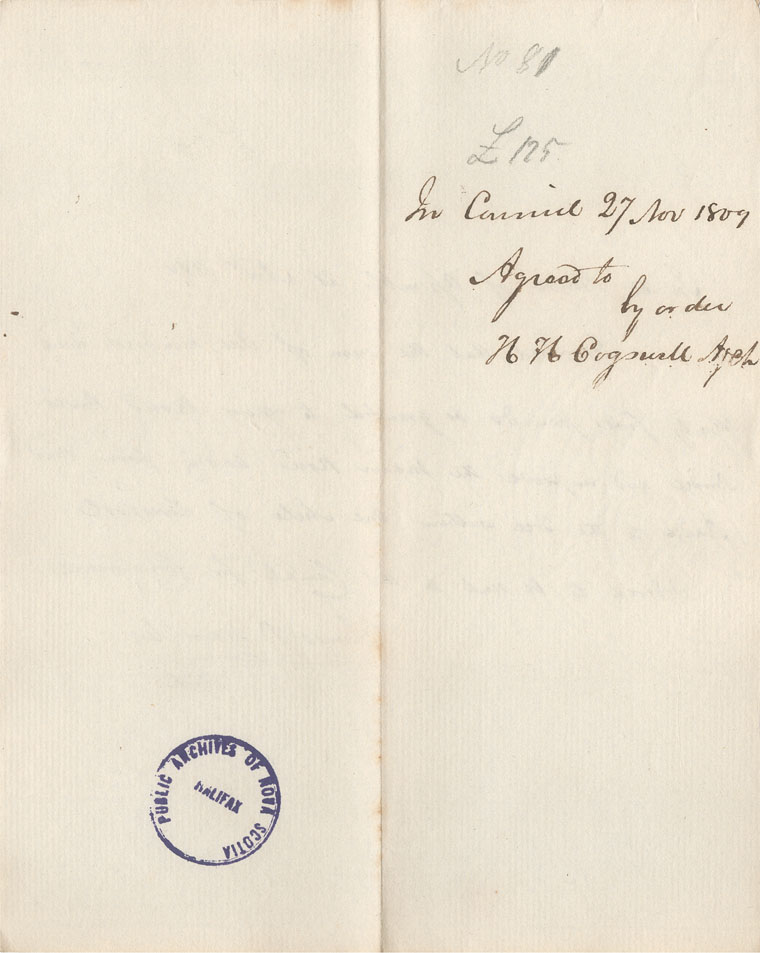 No 81
£ 125
In Council 27 Nov 1809
Agreed to
by order
H H Cogswell
PUBLIC ARCHIVES OF NOVA SCOTIA
HALIFAX